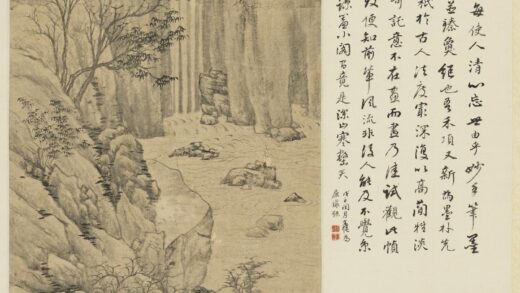 每使人清心忘世由乎妙在筆墨
臻奧絕也 項又新為墨林先
於古人法度窺深復以高簡雅淡
寄託意不在畫而畫乃佳試觀此幀
便知前輩風流非後人能及不覺
蓋小閣 竟是深山寒壑矣
戊 閏月